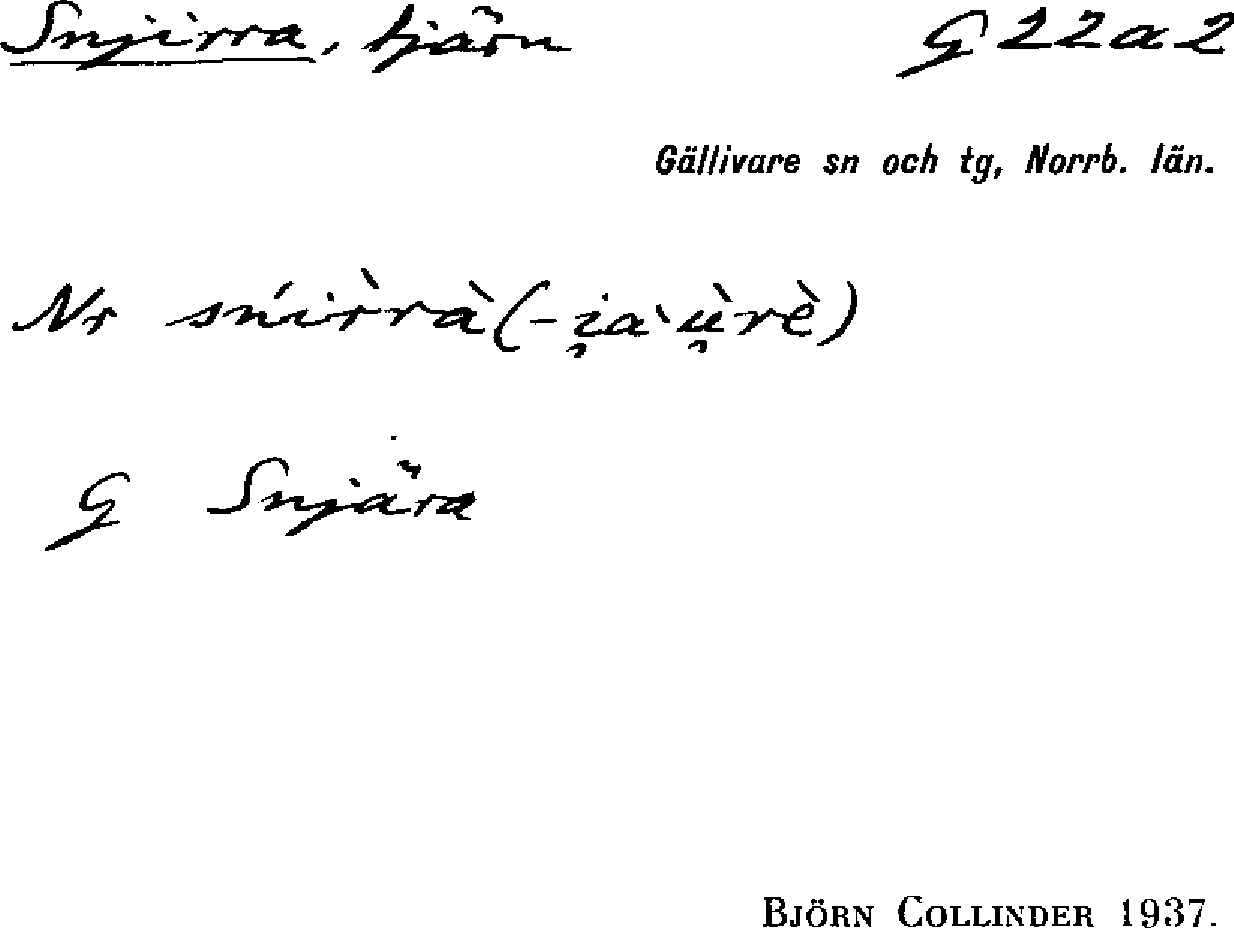 Snjirra, tjärn G 22a2
Gällivare sn och tg, Norrb. län.
Nr sńir̀rà (-i̯aˋù̯rè)
G Snjära
BJÖRN COLLINDER 1937.